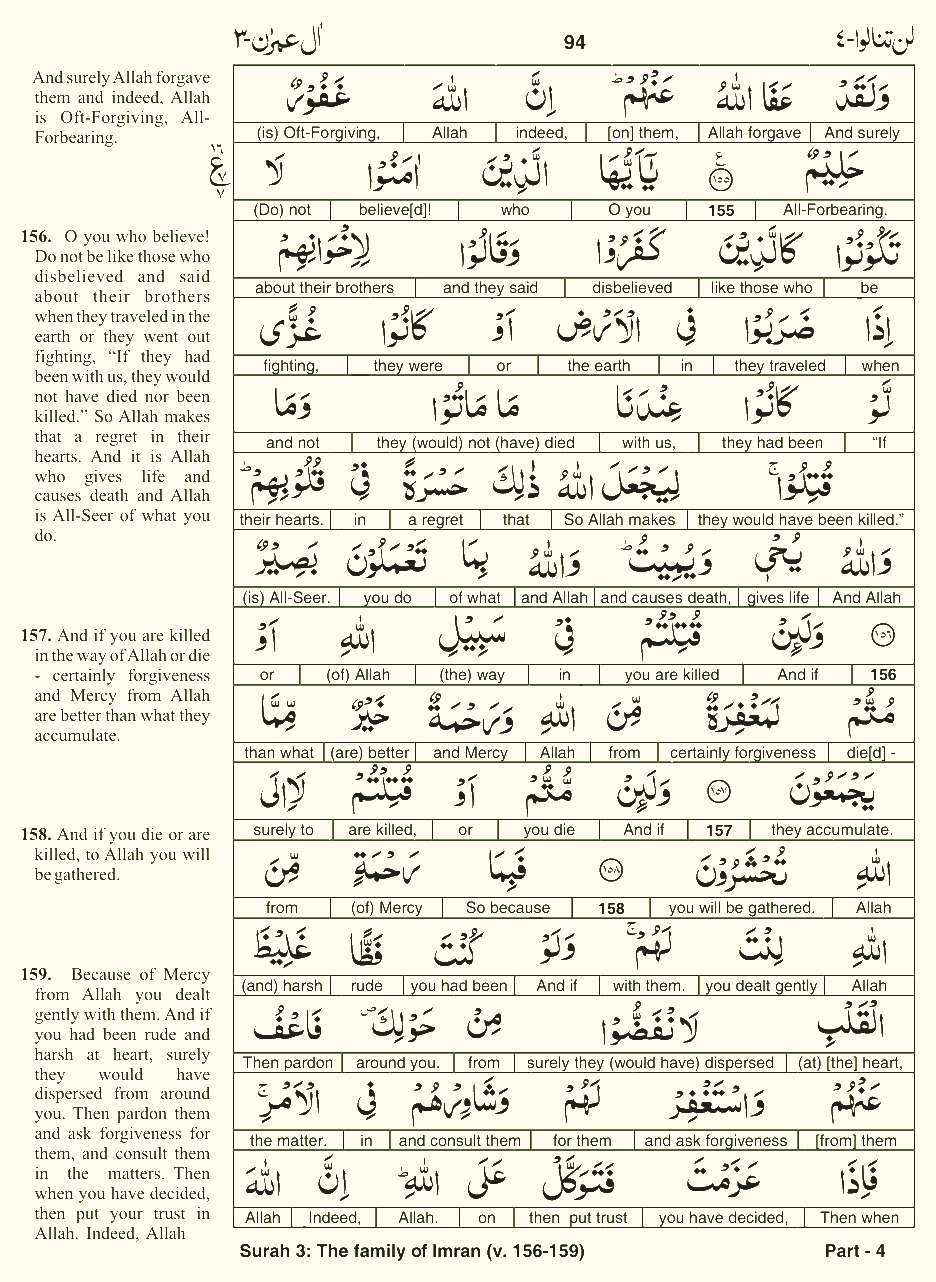 اٰل عمرٰن-٣ 94 لن تنالوا-٤
And surely Allah forgave
them and indeed, Allah
is Oft-Forgiving, All-
Forbearing.
156. O you who believe!
Do not be like those who
disbelieved and said
about their brothers
when they traveled in the
earth or they went out
fighting, “If they had
been with us, they would
not have died nor been
killed.” So Allah makes
that a regret in their
hearts. And it is Allah
who gives life and
causes death and Allah
is All-Seer of what you
do.
157. And if you are killed
in the way of Allah or die
- certainly forgiveness
and Mercy from Allah
are better than what they
accumulate.
158. And if you die or are
killed, to Allah you will
be gathered.
159. Because of Mercy
from Allah you dealt
gently with them. And if
you had been rude and
harsh at heart, surely
they would have
dispersed from around
you. Then pardon them
and ask forgiveness for
them, and consult them
in the matters. Then
when you have decided,
then put your trust in
Allah. Indeed, Allah
وَلَقَدْ عَفَا اللّٰهُ عَنْهُمْ ؕ اِنَّ اللّٰهَ غَفُوْرٌ
(is) Oft-Forgiving, Allah indeed, [on] them, Allah forgave And surely
حَلِيْمٌ ع ١٥٥ يٰۤاَيُّهَا الَّذِيْنَ اٰمَنُوْا لَا ١٦ ع ٧ ٧
(Do) not believe[d]! who O you 155 All-Forbearing.
تَكُوْنُوْا كَالَّذِيْنَ كَفَرُوْا وَقَالُوْا لِاِخْوَانِهِمْ
about their brothers and they said disbelieved like those who be
اِذَا ضَرَبُوْا فِي الْاَرْضِ اَوْ كَانُوْا غُزًّى
fighting, they were or the earth in they traveled when
لَّوْ كَانُوْا عِنْدَنَا مَا مَاتُوْا وَمَا
and not they (would) not (have) died with us, they had been “If
قُتِلُوْا ۚ لِيَجْعَلَ اللّٰهُ ذٰلِكَ حَسْرَةً فِيْ قُلُوْبِهِمْ ؕ
their hearts. in a regret that So Allah makes they would have been killed.”
وَاللّٰهُ يُحْيٖ وَيُمِيْتُ ؕ وَاللّٰهُ بِمَا تَعْمَلُوْنَ بَصِيْرٌ
(is) All-Seer. you do of what and Allah and causes death, gives life And Allah
١٥٦ وَلَئِنْ قُتِلْتُمْ فِيْ سَبِيْلِ اللّٰهِ اَوْ
or (of) Allah (the) way in you are killed And if 156
مُتُّمْ لَمَغْفِرَةٌ مِّنَ اللّٰهِ وَرَحْمَةٌ خَيْرٌ مِّمَّا
than what (are) better and Mercy Allah from certainly forgiveness die[d] -
يَجْمَعُوْنَ ١٥٧ وَلَئِنْ مُّتُّمْ اَوْ قُتِلْتُمْ لَاِالَى
surely to are killed, or you die And if 157 they accumulate.
اللّٰهِ تُحْشَرُوْنَ ١٥٨ فَبِمَا رَحْمَةٍ مِّنَ
from (of) Mercy So because 158 you will be gathered. Allah
اللّٰهِ لِنْتَ لَهُمْ ۚ وَلَوْ كُنْتَ فَظًّا غَلِيْظَ
(and) harsh rude you had been And if with them. you dealt gently Allah
الْقَلْبِ لَانْفَضُّوْا مِنْ حَوْلِكَ ۪ فَاعْفُ
Then pardon around you. from surely they (would have) dispersed (at) [the] heart,
عَنْهُمْ وَاسْتَغْفِرْ لَهُمْ وَشَاوِرْهُمْ فِي الْاَمْرِ ۚ
the matter. in and consult them for them and ask forgiveness [from] them
فَاِذَا عَزَمْتَ فَتَوَكَّلْ عَلَى اللّٰهِ ؕ اِنَّ اللّٰهَ
Allah Indeed, Allah. on then put trust you have decided, Then when
Surah 3: The family of Imran (v. 156-159) Part - 4